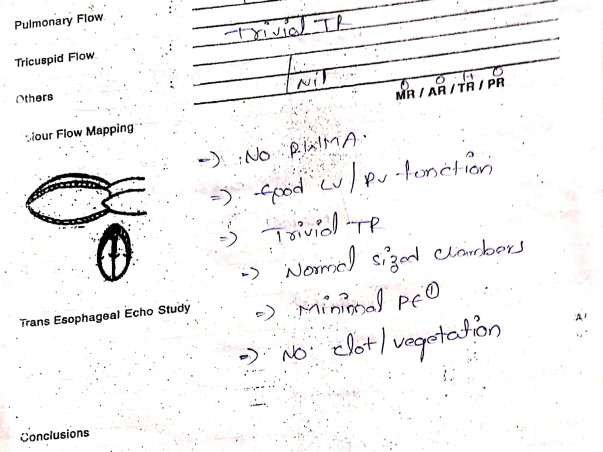 Pulmonary Flow
Trivial TR
Tricuspid Flow
Nil
Others
MR / AR / TR / PR
olour Flow Mapping
=> No RWMA.
=> Good LV / RV function
=> Trivial TR
=> Normal sized chambers
Trans Esophageal Echo Study
=> Minimal PE
=> No clot / vegetation
Conclusions